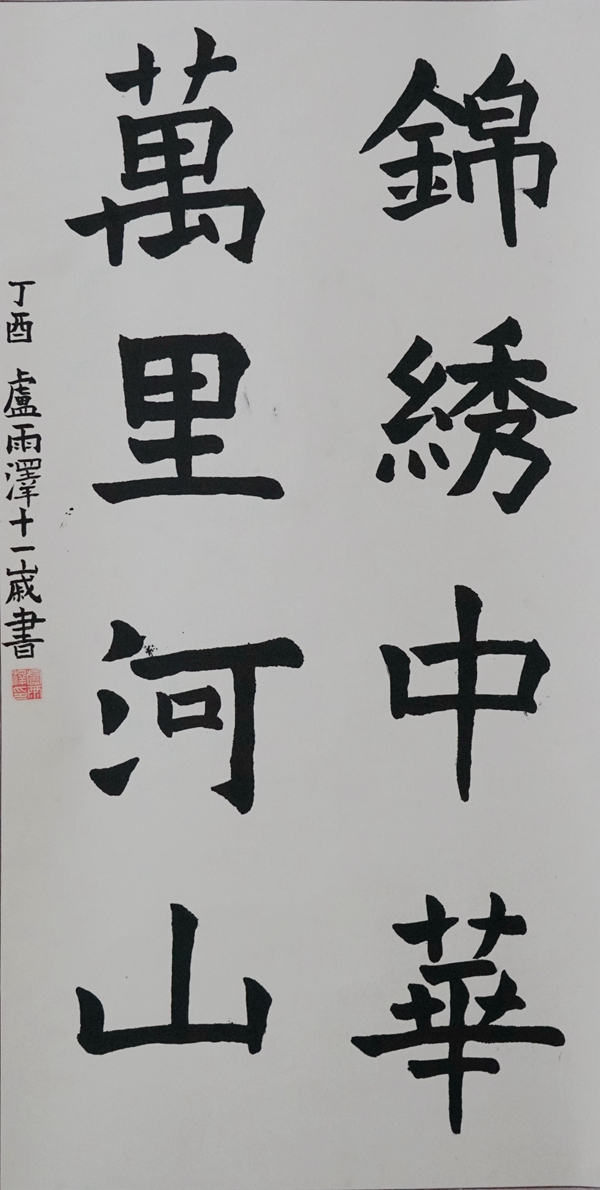 錦綉中華
萬里河山
丁酉 盧雨澤十一歲書